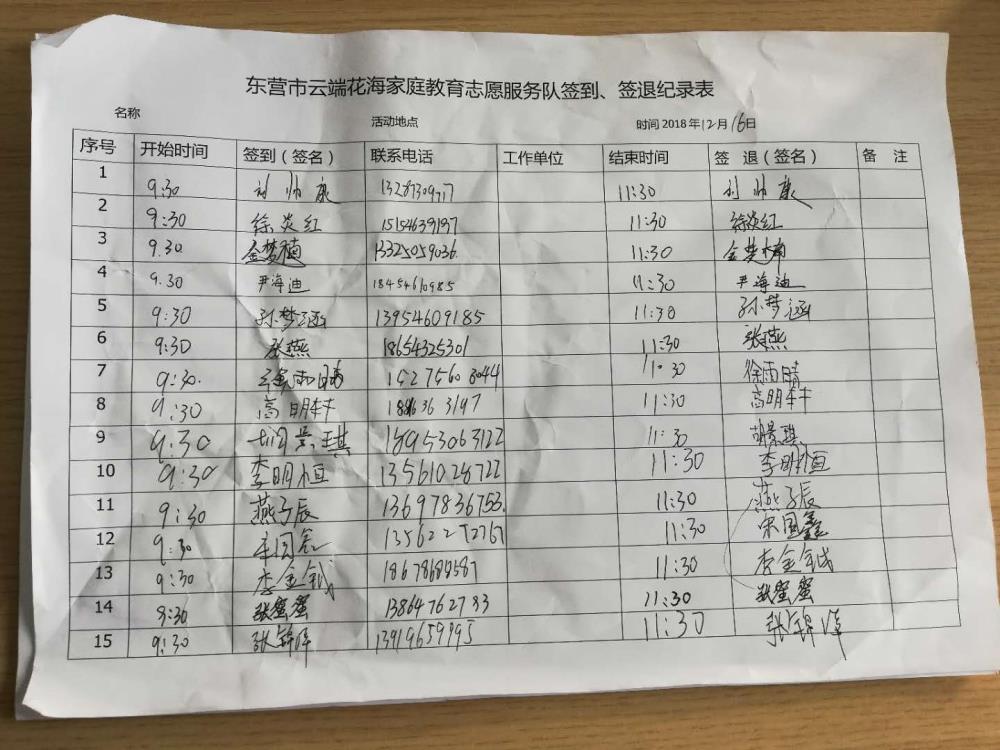 东营市云端花海家庭教育志愿服务队签到、签退纪录表
名称 活动地点 时间 2018 年12月16日
序号 开始时间 签到（签名） 联系电话 工作单位 结束时间 签 退（签名） 备 注
1 9:30 刘帅康 11:30 刘帅康
2 9:30 徐炎红 15154639197 11:30 徐炎红
3 9.30 金梦楠 13325059036. 11:30 金梦楠
4 9.30 尹海迪 18454610985 11:30 尹海迪
5 9:30 孙梦涵 13954609185 11:30 孙梦涵
6 9:30 张燕 18654325301 11:30 张燕
7 9:30. 徐雨晴 11:30 徐雨晴
8 9:30 高明轩 11:30 高明轩
9 9:30 胡景琪 18953063122 11:30 胡景琪
10 9:30 李明恒 13561028722 11:30 李明恒
11 9:30 燕子辰 13697836753. 11:30 燕子辰
12 9:30 11:30 宋国鑫
13 9:30 李金钺 11:30 李金钺
14 9:30 张蛮蛮 11:30 张蛮蛮
15 9:30 张锦洋 11:30 张锦洋